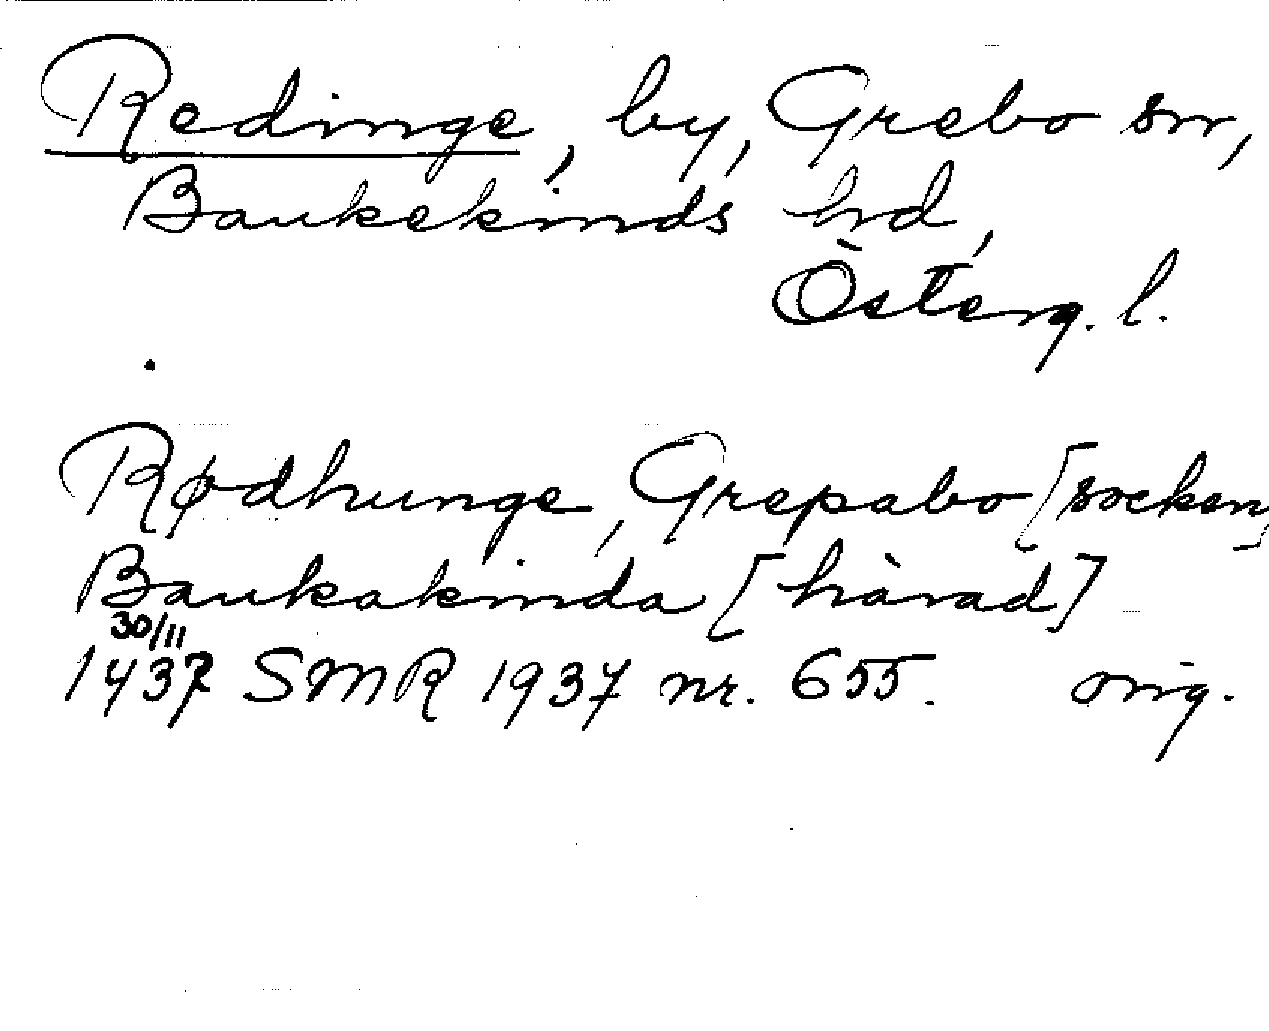 Redinge, by, Grebo sn,
Bankekinds hd,
Österg. l.
Rødhunge, Grepabo [socken]
Bankakinda [härad]
30/11
1437 SMR 1937 nr. 655. orig.